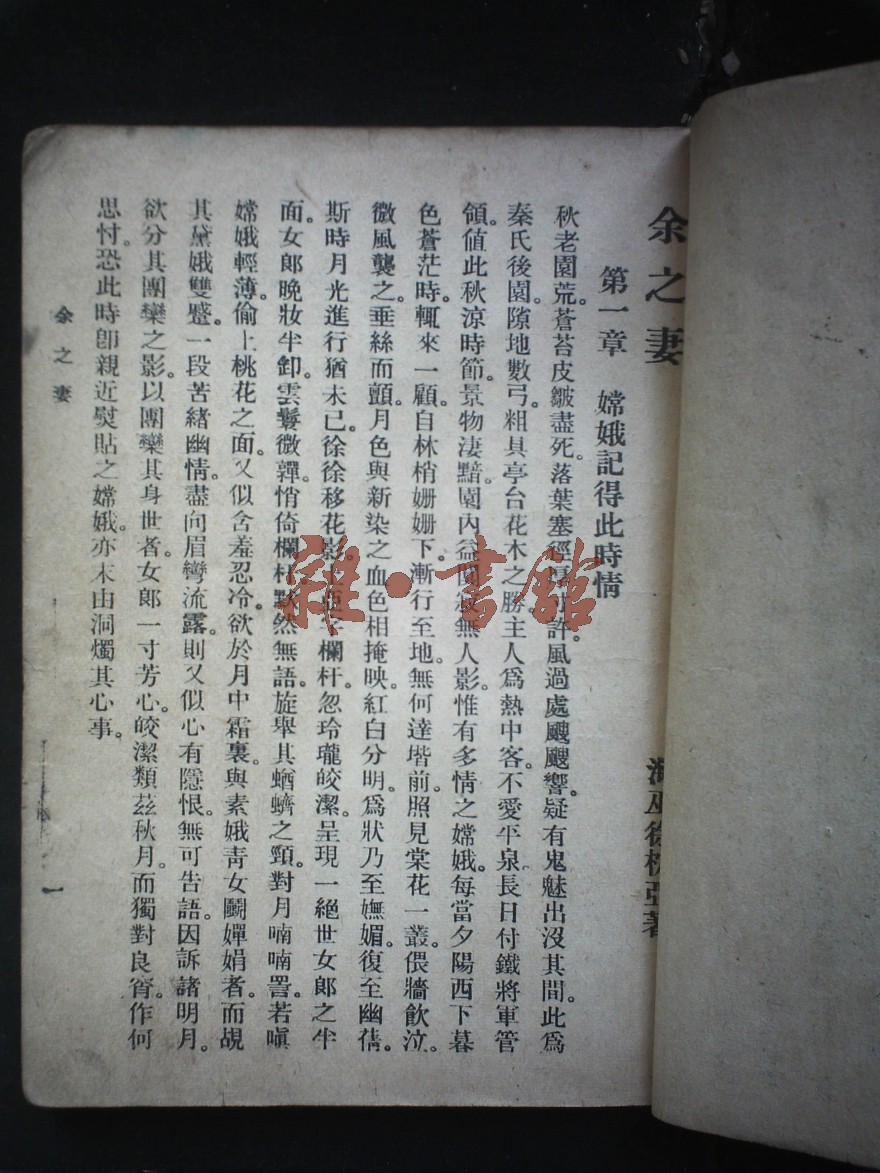 余之妻
海巫徐枕亞著
第一章　嫦娥記得此時情
秋老園荒。蒼苔皮皴盡死。落葉塞徑厚寸許。風過處颼颼響。疑有鬼魅出沒其間。此爲
秦氏後園。隙地數弓。粗具亭台花木之勝。主人爲熱中客。不愛平泉。長日付鐵將軍管
領。値此秋凉時節。景物淒黯。園內益闃寂無人影。惟有多情之嫦娥。每當夕陽西下。暮
色蒼茫時。輒來一顧。自林梢姍姍下。漸行至地。無何達堦前。照見棠花一叢。偎牆飮泣。
微風襲之。垂絲而顫。月色與新染之血色相掩映。紅白分明。爲狀乃至嫵媚。復至幽倩。
斯時月光進行猶未已。徐徐移花影 欄杆。忽玲瓏皎潔。呈現一絕世女郎之半
面。女郎晚妝半卸。雲鬟微嚲。悄倚欄杆。默然無語。旋舉其蝤蠐之頸。對月喃喃詈。若嗔
嫦娥輕薄。偷上桃花之面。又似含羞忍冷。欲於月中霜裏。與素娥靑女鬭嬋娟者。而覘
其黛娥雙蹙。一段苦緒幽情。盡向眉彎流露。則又似心有隱恨。無可告語。因訴諸明月。
欲分其團欒之影。以團欒其身世者。女郎一寸芳心。皎潔類茲秋月。而獨對良宵。作何
思忖。恐此時卽親近熨貼之嫦娥。亦未由洞燭其心事。
余之妻
一
雜·書館